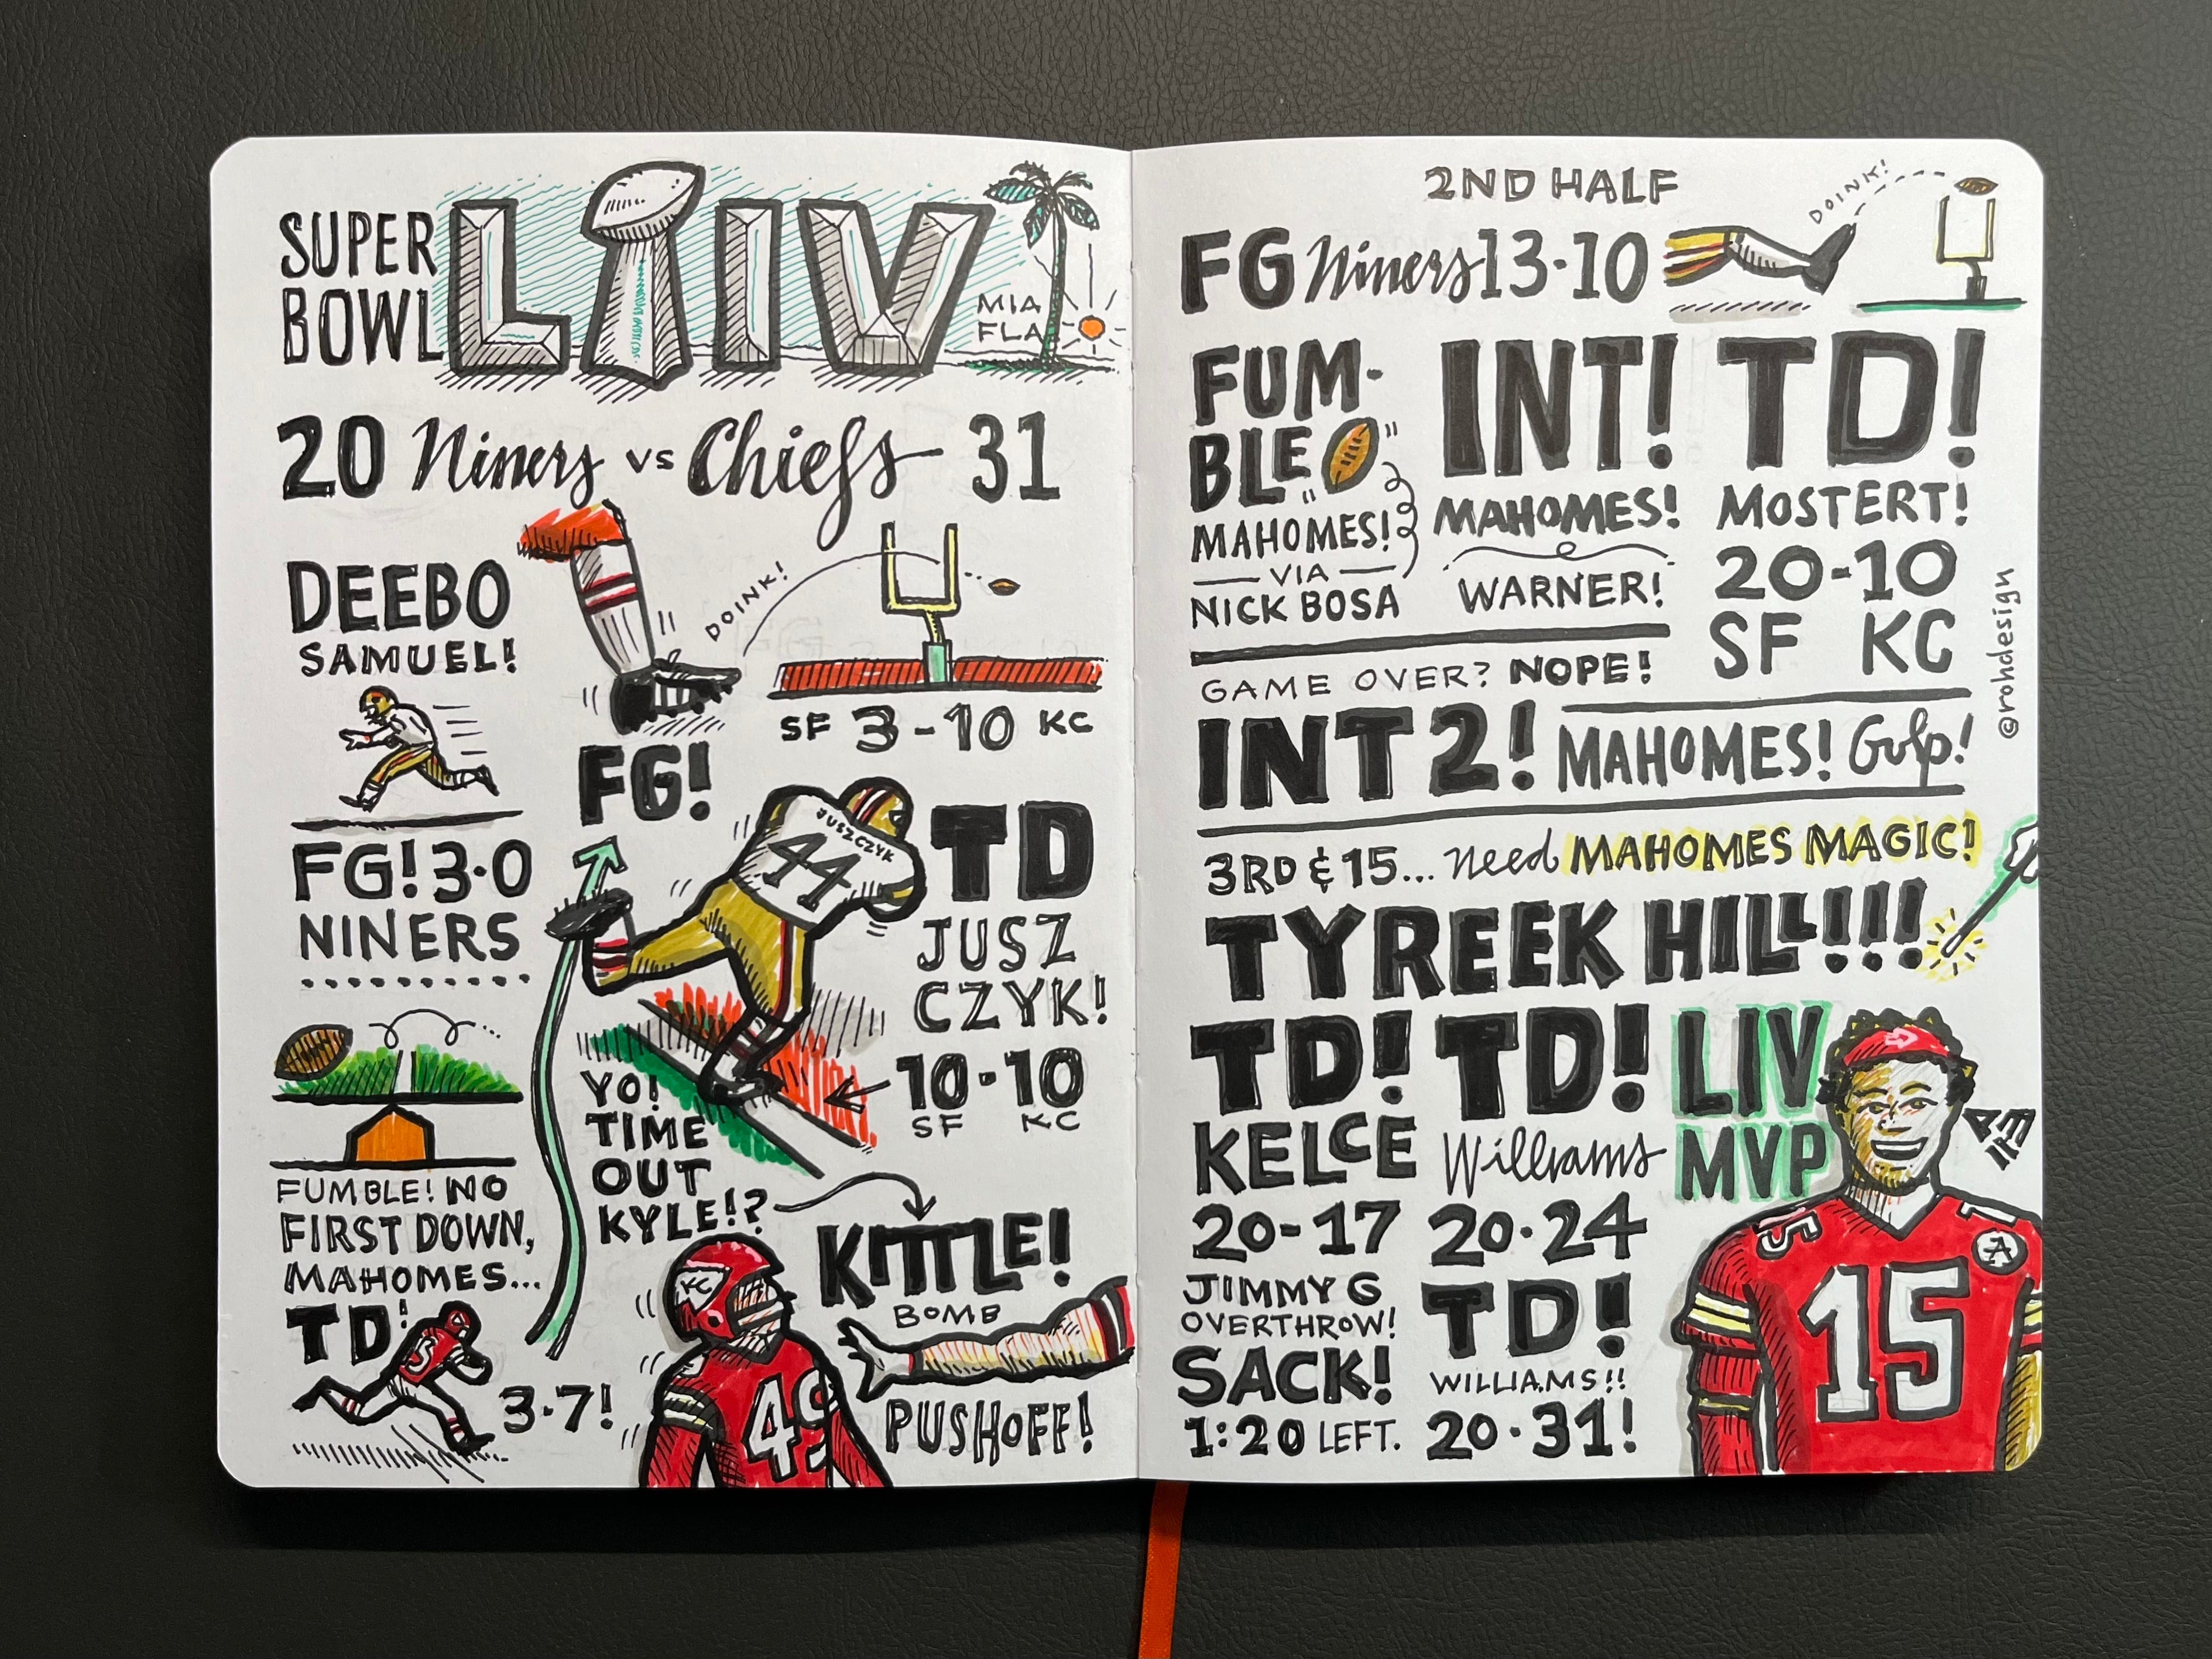 SUPER
BOWL
LIV
MIA
FLA
20 Niners vs Chiefs 31
DEEBO
SAMUEL!
FG! 3·0
NINERS
FUMBLE! NO
FIRST DOWN,
MAHOMES...
TD!
15
3·7!
DOINK!
SF 3-10 KC
FG!
JUSZCZYK
44
TD
JUSZ
CZYK!
10-10
SF KC
YO!
TIME
OUT
KYLE!?
KITTTLE!
BOMB
PUSHOFF!
KC
49
2ND HALF
FG Niners 13·10
DOINK!
FUM-
BLE
MAHOMES!
VIA
NICK BOSA
INT!
MAHOMES!
WARNER!
TD!
MOSTERT!
20-10
SF KC
@rohdesign
GAME OVER? NOPE!
INT 2! MAHOMES! Gulp!
3RD & 15... need MAHOMES MAGIC!
TYREEK HILL!!!
TD!
KELCE
20-17
JIMMY G
OVERTHROW!
SACK!
1:20 LEFT.
TD!
Williams
20·24
TD!
WILLIAMS!!
20·31!
LIV
MVP
15
15